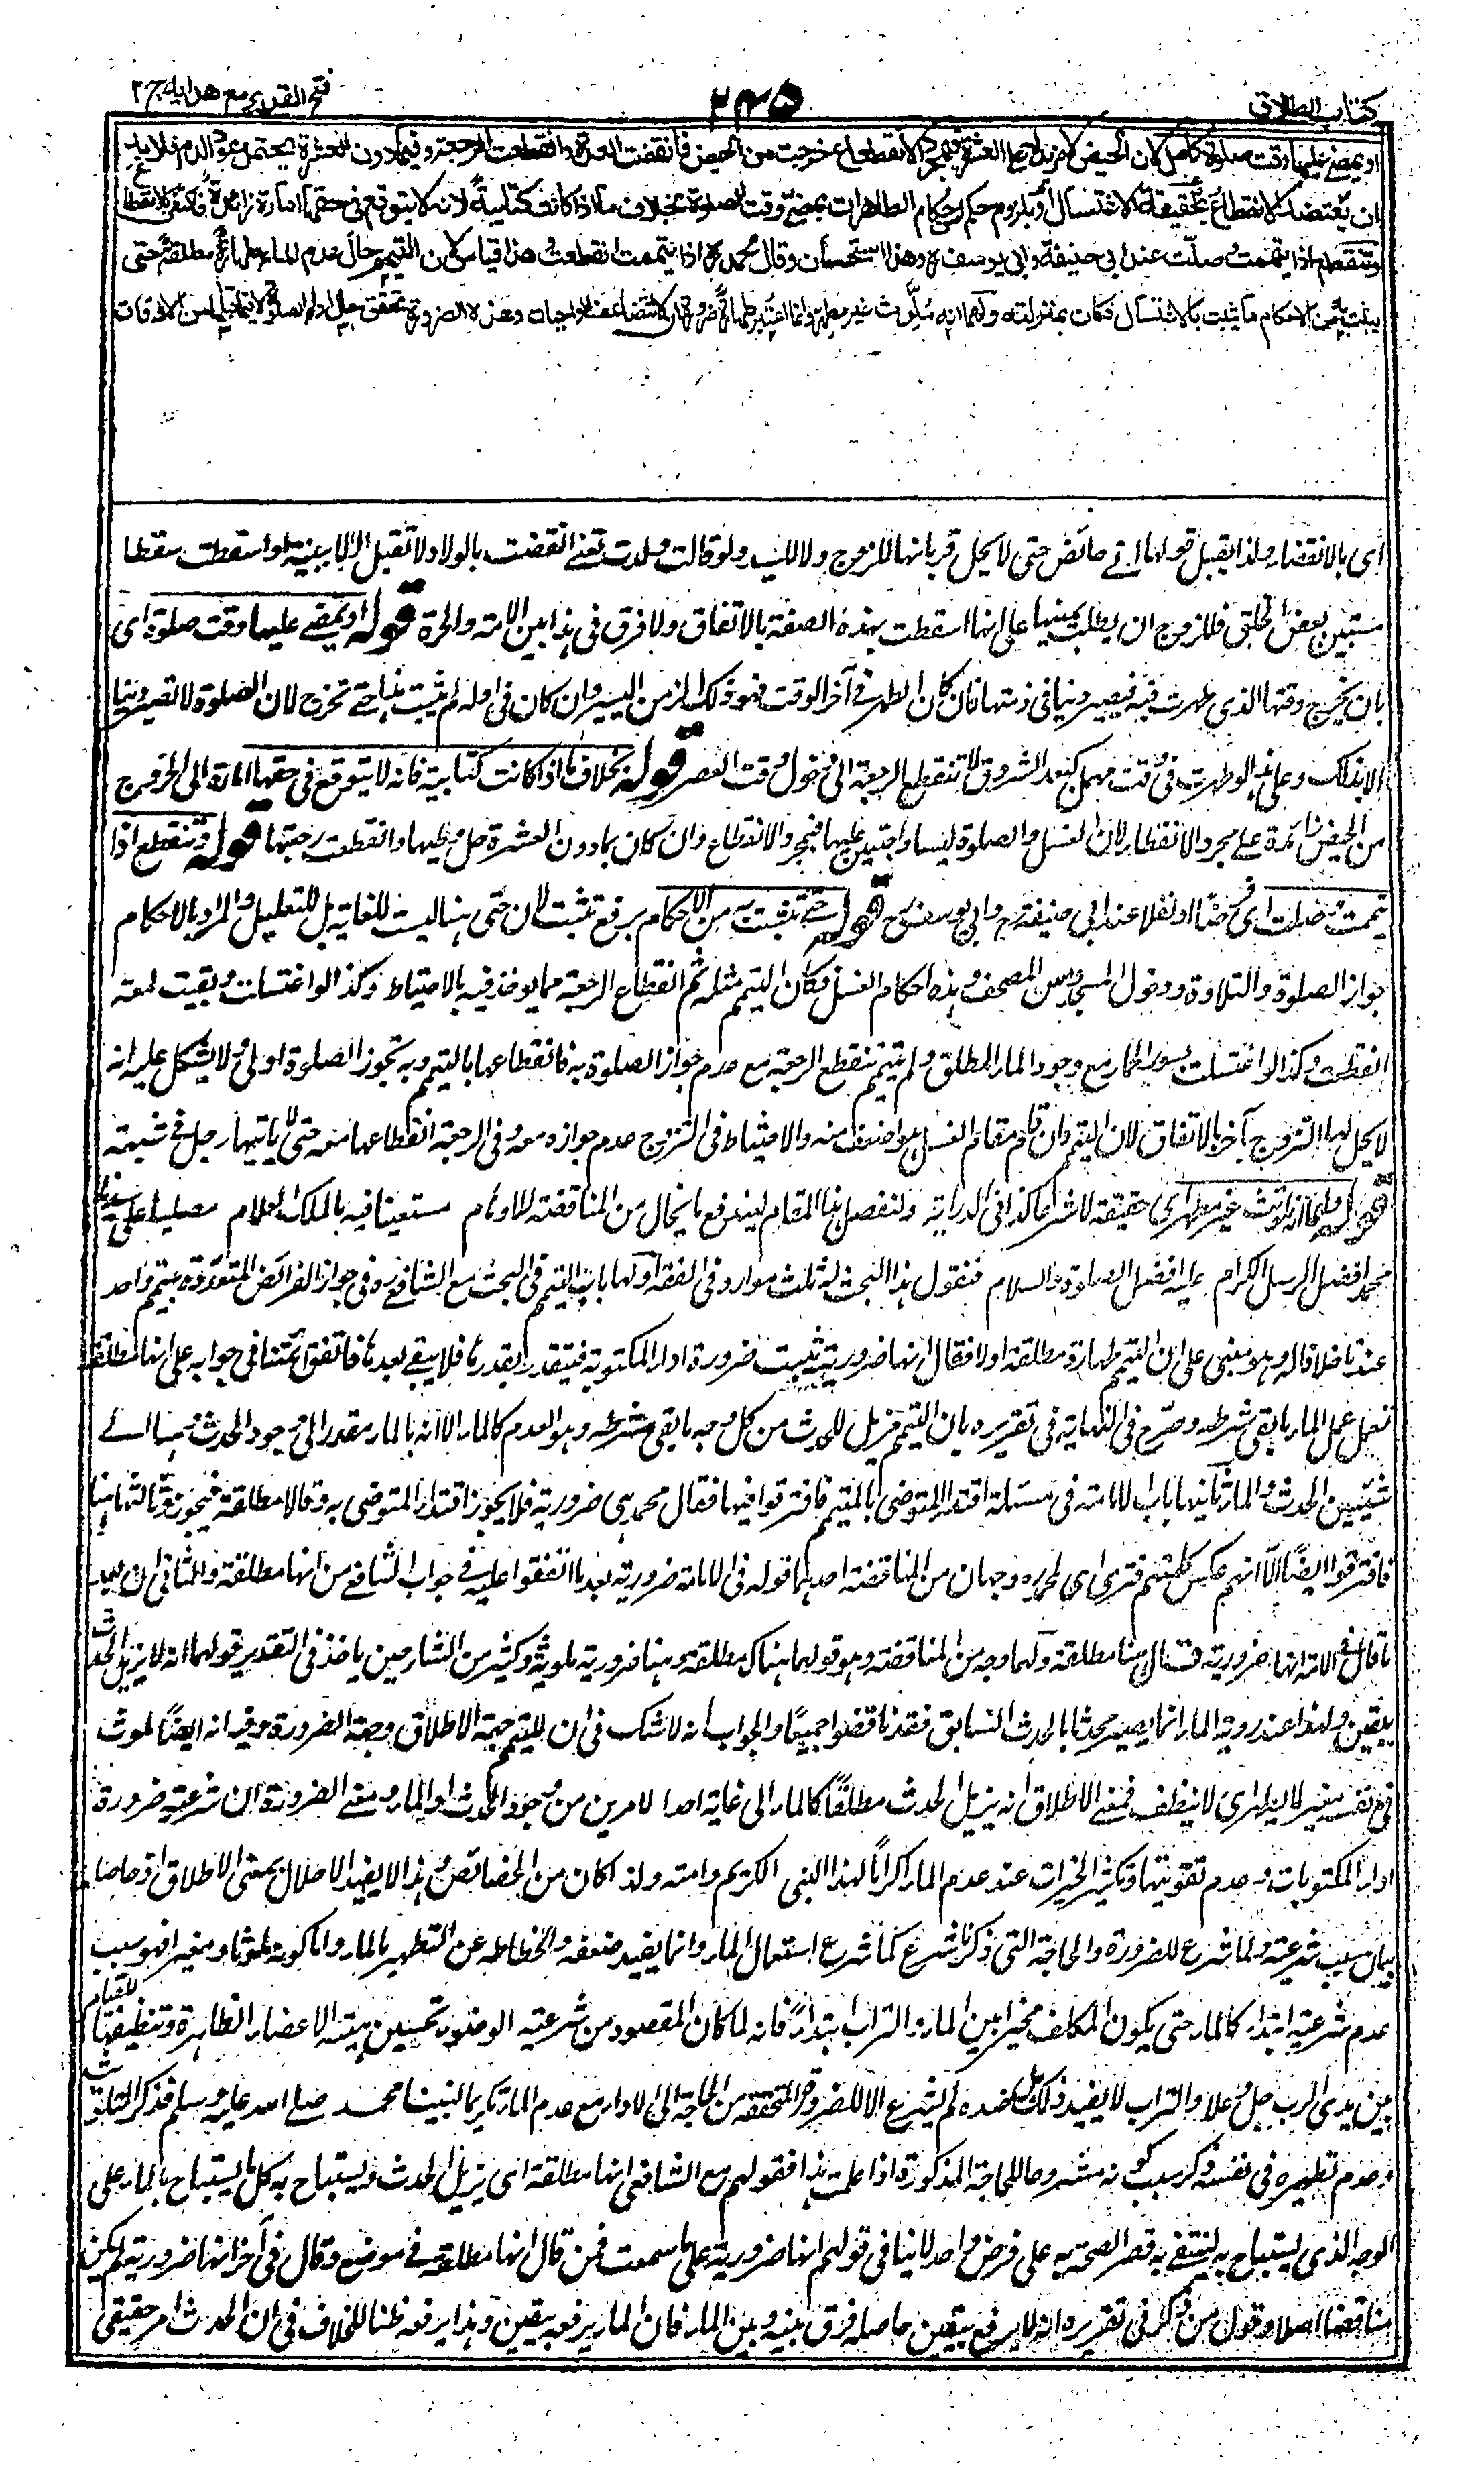 كتاب الطلاق
٢٤٥
فتح القدير مع هدايه ج ٢
او يمضي عليها وقت صلوة كامل لان الحيض لا مزيد له على العشرة فبمجرد الانقطاع خرجت من الحيض فانقضت العدة وانقطعت الرجعة وفيما دون العشرة يحتمل عود الدم فلا بد
ان يعتضد الانقطاع بحقيقة الاغتسال او بلزوم حكم من احكام الطاهرات بمضي وقت الصلوة بخلاف ما اذا كانت كتابية لانه لا يتوقع في حقها امارة زائدة فاكتفى بالانقطاع
وتنقطع اذا تيممت وصلت عند ابي حنيفة وابي يوسف ره وهذا استحسان وقال محمد ره اذا تيممت انقطعت وهذا قياس لان التيمم حال عدم الماء طهارة مطلقة حتى
يثبت به من الاحكام ما يثبت بالاغتسال فكان بمنزلته ولهما انه ملوث غير مطهر وانما اعتبر طهارة ضرورة ان لا تتضاعف الواجبات وهذه الضرورة تتحقق حال اداء الصلوة لا فيما قبلها من الاوقات
اى بالانقضاء ولذا يقبل قولها انى حائض حتى لا يحل قربانها للزوج ولا للسيد ولو قالت ولدت تعنى انقضت بالولاد لا تقبل الا ببينة او اسقطت سقطا
مستبين بعض الخلق فللزوج ان يطلب يمينها على انها اسقطت بهذه الصفة بالاتفاق ولا فرق فى هذا بين الامة والحرة قوله او يمضى عليها وقت صلوة اى
بان يخرج وقتها الذى طهرت فيه فيصير دينا فى ذمتها فان كان الطهر فى آخر الوقت فهو ذلك الزمن اليسير وان كان فى اوله لم يثبت هذا حتى تخرج لان الصلوة لا تصير دينا
الا بذلك وعلى هذا لو طهرت فى وقت مهمل كبعد الشروق لا تنقطع الرجعة الى دخول وقت العصر قوله بخلاف ما اذا كانت كتابية فانه لا يتوقع فى حقها امارة الى الخروج
من الحيض زائدة على مجرد الانقطاع لان الغسل والصلوة ليسا واجبتين عليها فبمجرد الانقطاع وان كان بما دون العشرة حل وطيها وانقطعت رجعتها قوله وتنقطع اذا
تيممت وصلت اى فرضا او نفلا عند ابى حنيفة رح وابى يوسف رح قوله حتى تثبت به من الاحكام برفع تثبت لان حتى هنا ليست للغاية بل للتعليل والمراد بالاحكام
جواز الصلوة والتلاوة ودخول المسجد ومس المصحف وهذه احكام الغسل فكان التيمم مثله ثم انقطاع الرجعة مما يوخذ فيه بالاحتياط وكذا لو اغتسلت وبقيت لمعة
انقطعت وكذا لو اغتسلت بسور الحمار مع وجود الماء المطلق ولم تتيمم تنقطع الرجعة مع عدم جواز الصلوة به فانقطاعها بالتيمم وبه تجوز الصلوة اولى ولا يشكل عليه انه
لا يحل لها التزوج بآخر بالاتفاق لان التيمم وان قام مقام الغسل هو اضعف منه والاحتياط فى التزوج عدم جوازه معه وفى الرجعة انقطاعها معه حتى لا ياتيها رجل فى شبهة
قوله ولهما انه ملوث غير مطهر اى حقيقة لا شرعا كذا فى الدراية ولنفصل هذا المقام ليندفع ما يخال من المناقضة للاوهام مستعينا فيه بالملك العلام مصليا على سيدنا
محمد افضل الرسل الكرام عليه افضل الصلوة والسلام فنقول هذا البحث له ثلث موارد فى الفقه اولها باب التيمم فى البحث مع الشافعى ره فى جواز الفرائض المتعددة بتيمم واحد
عندنا خلافا له وهو مبنى على ان التيمم طهارة مطلقة اولا فقال انها ضرورية تثبت ضرورة اداء المكتوبة فيتقدر بقدرها فلا يبقى بعدها فاتفق ائمتنا فى جوابه على انها مطلقة
تعمل عمل الماء ما بقى شرطه وصرح فى النهاية فى تقريره بان التيمم مزيل للحدث من كل وجه ما بقى شرطه وهو العدم كالماء الا انه بالماء مقدر الى وجود الحدث وهنا الى
شيئين الحدث والماء ثانيها باب الامامة فى مسئلة اقتداء المتوضى بالمتيمم فافترقوا فيها فقال محمد هى ضرورية فلا يجوز اقتداء المتوضى به وقالا مطلقة فيجوز وثالثها هنا
فافترقوا ايضًا الا انهم عكس كلمتهم فترى اى لمحمد ره وجهان من المناقضة احدهما قوله فى الامامة ضرورية بعد ما اتفقوا عليه فى جواب الشافعى من انها مطلقة والثانى ان بعد
ما قال فى الامامة انها ضرورية قال هنا مطلقة ولهما وجه من المناقضة وهو قولهما هناك مطلقة وهنا ضرورية ملوثة وكثير من الشارحين ياخذ فى التقدير قولهما انه لا يزيل الحدث
بيقين ولهذا عند روية الماء انما يصير محدثا بالحدث السابق فقد ناقضوا جميعًا والجواب انه لا شك فى ان للتيمم جهة الاطلاق وجهة الضرورة وفيه انه ايضًا ملوث
فى نفسه مغير لا مطهر اى لا ينظف فمعنى الاطلاق انه يزيل الحدث مطلقًا كالماء الى غاية احد الامرين من وجود الحدث او الماء ومعنى الضرورة ان شرعيته ضرورة
اداء المكتوبات وعدم تفويتها وتكثير الخيرات عند عدم الماء اكرامًا لهذا النبى الكريم وامته ولذا كان من الخصائص وهذا لا يفيد الاخلال بمعنى الاطلاق اذ حاصله
بيان سبب شرعيته ولما شرع للضرورة والحاجة التى ذكرنا شرع كما شرع استعمال الماء وانما يفيد ضعفه وانحطاطه عن التطهير بالماء واما كونه ملوثا ومغبرا فهو سبب
عدم شرعيته ابتداء كالماء حتى يكون المكلف مخيرا بين الماء والتراب ابتداءً فانه لما كان المقصود من شرعية الوضوء تحسين هيئة الاعضاء الظاهرة وتنظيفها للقيام
بين يدى الرب جل وعلا والتراب لا يفيد ذلك بل ضده لم يشرع الا للضرورة المتحققة من الحاجة الى الاداء مع عدم الماء تكريما لنبينا محمد صلى الله عليه وسلم فذكر التلوث
وعدم تطهيره فى نفسه ذكر سبب كونه مشروطا للحاجة المذكورة اذا علمت هذا فقولهم مع الشافعى انها مطلقة اى يزيل الحدث ويستباح به كل ما يستباح بالماء على
الوجه الذى يستباح به لينتفى به قصر الصحة به على فرض واحد لا ينافى قولهم انها ضرورية على ما سمعت فمن قال انها مطلقة فى موضع وقال فى آخر انها ضرورية لم يكن
مناقضا اصلا وقول من ذكر فى تقريره انه لا يرفع بيقين حاصله فرق بينه وبين الماء فان الماء يرفعه بيقين وهذا يرفعه ظنا للخلاف فى ان الحدث امر حقيقى